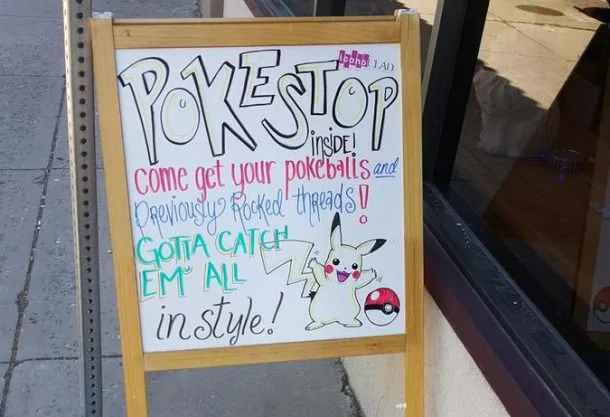 POKESTOP
inside!
come get your pokeballs and
Previously Rocked threads!
GOTTA CATCH
EM' ALL
in style!